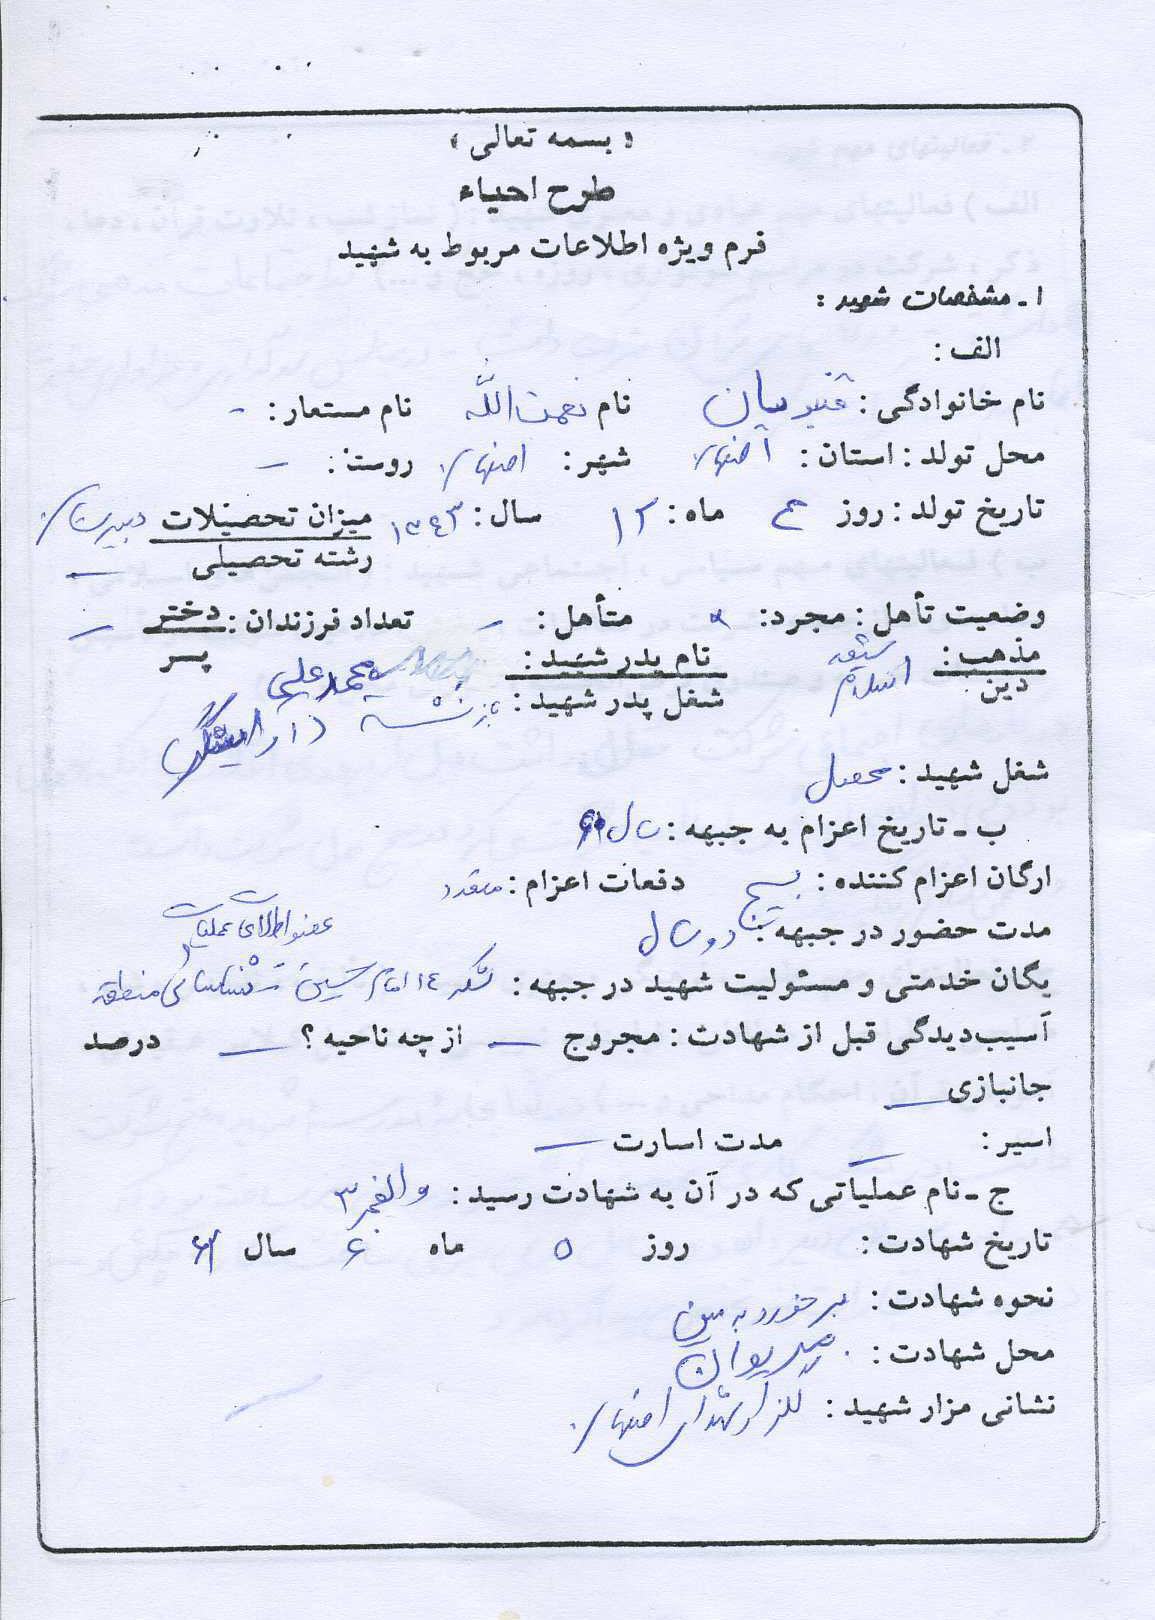 « بسمه تعالی »
طرح احیاء
فرم ویژه اطلاعات مربوط به شهید
۱ ـ مشخصات شهید :
الف :
نام خانوادگی : قنبریان نام نعمت الله نام مستعار : -
محل تولد : استان : اصفهان شهر : اصفهان روستا : -
تاریخ تولد : روز ۴ ماه : ۱۲ سال : ۱۳۴۳ میزان تحصیلات دبیرستان
رشته تحصیلی —
وضعیت تأهل : مجرد : × متأهل : - تعداد فرزندان : دختر —
پسر
مذهب : شیعه نام پدر شهید : محمد علی
دین اسلام شغل پدر شهید : بازنشسته دارائی
شغل شهید : محصل
ب ـ تاریخ اعزام به جبهه : سال
ارگان اعزام کننده : بسیج دفعات اعزام : متعدد
مدت حضور در جبهه : دو سال عضو اطلاعات عملیات
یگان خدمتی و مسئولیت شهید در جبهه : لشکر ۱۴ امام حسین - شناسائی منطقه
آسیب‌دیدگی قبل از شهادت : مجروح — از چه ناحیه ؟ — درصد
جانبازی —
اسیر : — مدت اسارت —
ج ـ نام عملیاتی که در آن به شهادت رسید : والفجر ۳
تاریخ شهادت : روز ۵ ماه ۶ سال ۶۲
نحوه شهادت : برخورد به مین
محل شهادت : مریوان
نشانی مزار شهید : گلزار شهدای اصفهان